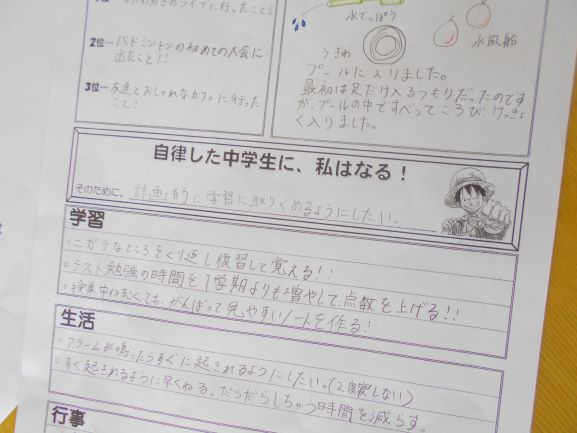 のライブに行ったこと!
2位…バドミントンの初めての大会に
出たこと!!
3位…友達とおしゃれなカフェに行った
こと!
水でっぽう
水風船
うきわ
プールに入りました。
最初は足だけ入るつもりだったのです
が、プールの中ですべってころび、けっきょ
く入りました。
自律した中学生に、私はなる!
そのために、計画的に学習に取りくめるようにしたい。
学習
◦ニガテなところをくり返し復習して覚える!!
◦テスト勉強の時間を1学期よりも増やして点数を上げる!!
◦授業中ねむくても、がんばって見やすいノートを作る!
生活
◦アラームが鳴ったらすぐに起きれるようにしたい。(2度寝しない)
◦すぐ起きれるように早くねる。だらだらしちゃう時間を減らす。
行事